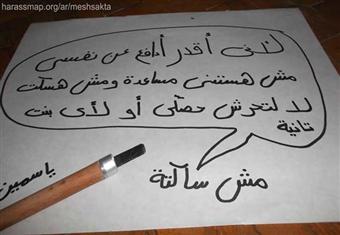 harassmap.org/ar/meshsakta
لأني أقدر أدافع عن نفسي
مش هستنى مساعدة ومش هسكت
لا لتحرش حصلي أو لأي بنت
تانية
مش ساكتة
ياسمين